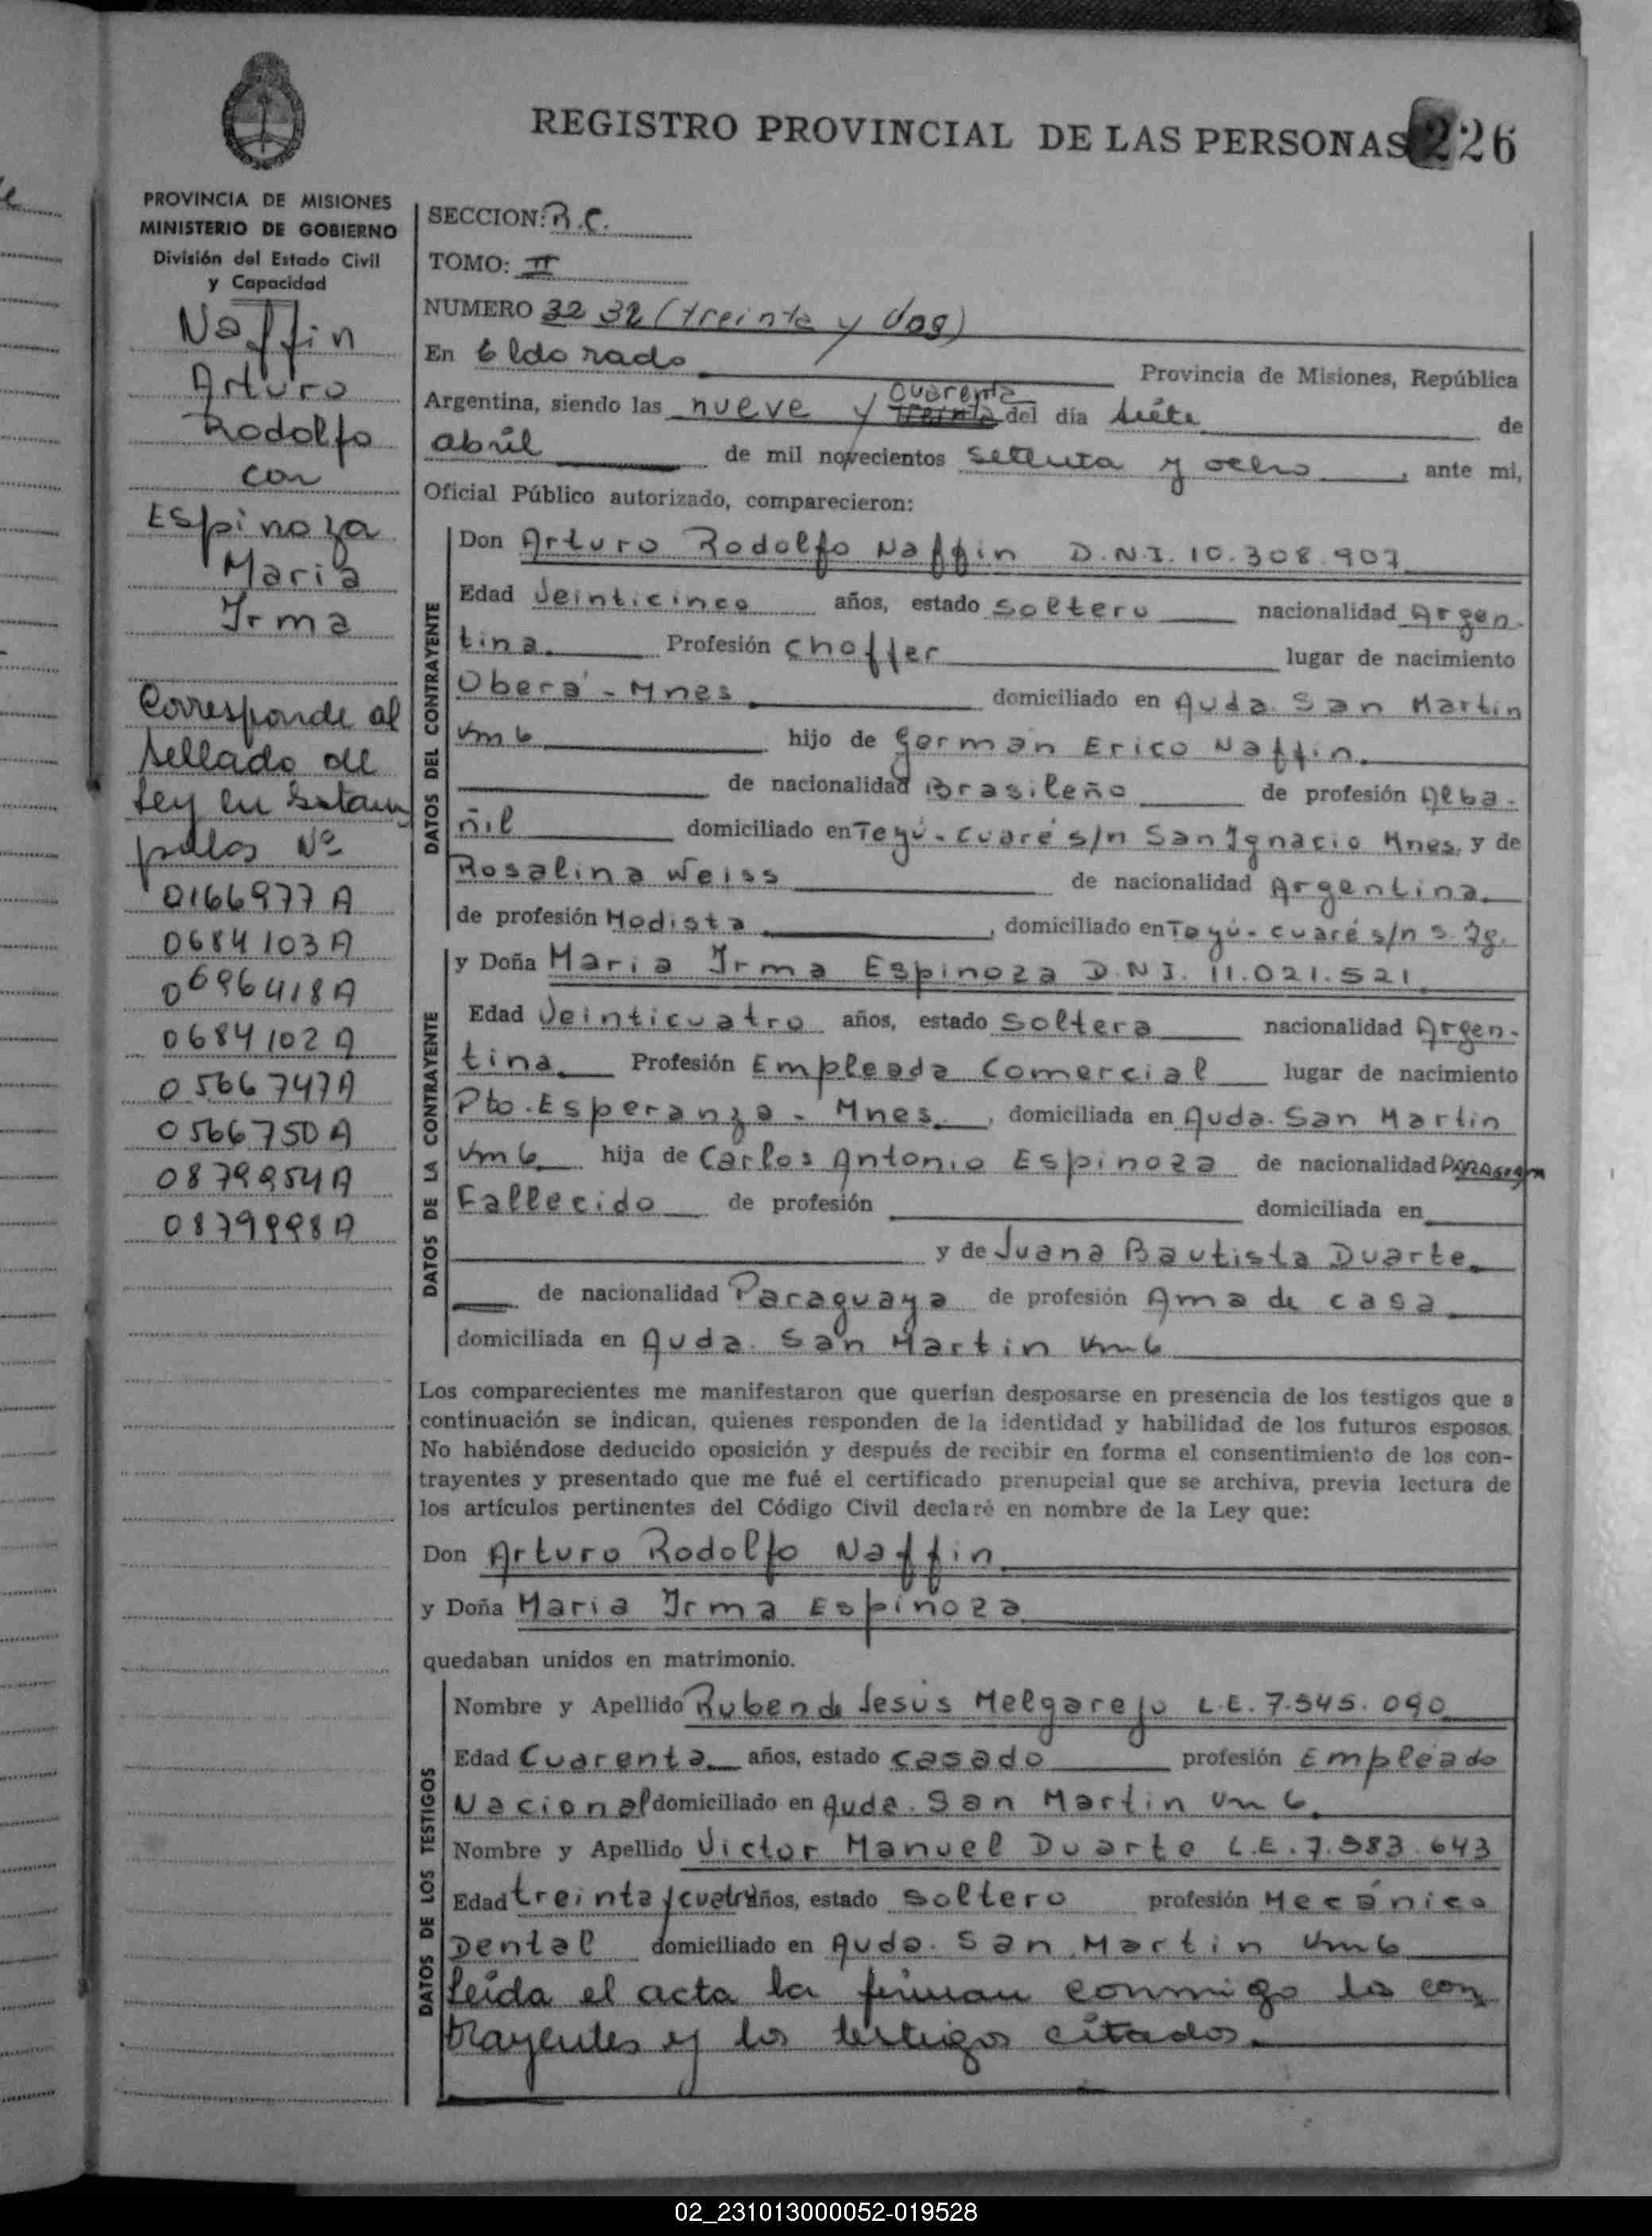 REGISTRO PROVINCIAL DE LAS PERSONAS 226
PROVINCIA DE MISIONES
MINISTERIO DE GOBIERNO
División del Estado Civil
y Capacidad
Naffin
Arturo
Rodolfo
con
Espinoza
Maria
Irma
Corresponde al
sellado de
Ley en Estam
pillas Nº
0166977 A
0684103 A
0696418 A
0684102 A
0566747 A
0566750 A
0879954 A
0879998 A
SECCION: R.C.
TOMO: II
NUMERO 32 32 (treinta y dos)
En Eldorado Provincia de Misiones, República
cuarenta
Argentina, siendo las nueve y treinta del día siete de
abril de mil novecientos setenta y ocho, ante mi,
Oficial Público autorizado, comparecieron:
DATOS DEL CONTRAYENTE
Don Arturo Rodolfo Naffin D.N.I. 10.308.907
Edad Veinticinco años, estado soltero nacionalidad Argen-
tina Profesión choffer lugar de nacimiento
Oberá - Mnes domiciliado en Avda. San Martin
Km 6 hijo de German Erico Naffin
de nacionalidad Brasileño de profesión Alba-
ñil domiciliado en Teyú-Cuaré s/n San Ignacio Mnes, y de
Rosalina Weiss de nacionalidad Argentina
de profesión Modista, domiciliado en Teyú-cuaré s/n S. Ig.
DATOS DE LA CONTRAYENTE
y Doña Maria Irma Espinoza D.N.I. 11.021.521
Edad Veinticuatro años, estado Soltera nacionalidad Argen-
tina Profesión Empleada Comercial lugar de nacimiento
Pto. Esperanza - Mnes, domiciliada en Avda. San Martin
Km 6 hija de Carlos Antonio Espinoza de nacionalidad
Fallecido de profesión domiciliada en
y de Juana Bautista Duarte
de nacionalidad Paraguaya de profesión Ama de casa
domiciliada en Avda. San Martin Km 6
Los comparecientes me manifestaron que querían desposarse en presencia de los testigos que a
continuación se indican, quienes responden de la identidad y habilidad de los futuros esposos.
No habiéndose deducido oposición y después de recibir en forma el consentimiento de los con-
trayentes y presentado que me fué el certificado prenupcial que se archiva, previa lectura de
los artículos pertinentes del Código Civil declaré en nombre de la Ley que:
Don Arturo Rodolfo Naffin
y Doña Maria Irma Espinoza
quedaban unidos en matrimonio.
DATOS DE LOS TESTIGOS
Nombre y Apellido Ruben de Jesús Melgarejo L.E. 7.545.090
Edad Cuarenta años, estado casado profesión Empleado
Nacional domiciliado en Avda. San Martin Km 6
Nombre y Apellido Victor Manuel Duarte L.E. 7.583.643
Edad treinta y cuatro años, estado soltero profesión Mecánico
Dental domiciliado en Avda. San Martin Km 6
Leída el acta la firman conmigo los con
trayentes y los testigos citados.
02_231013000052-019528